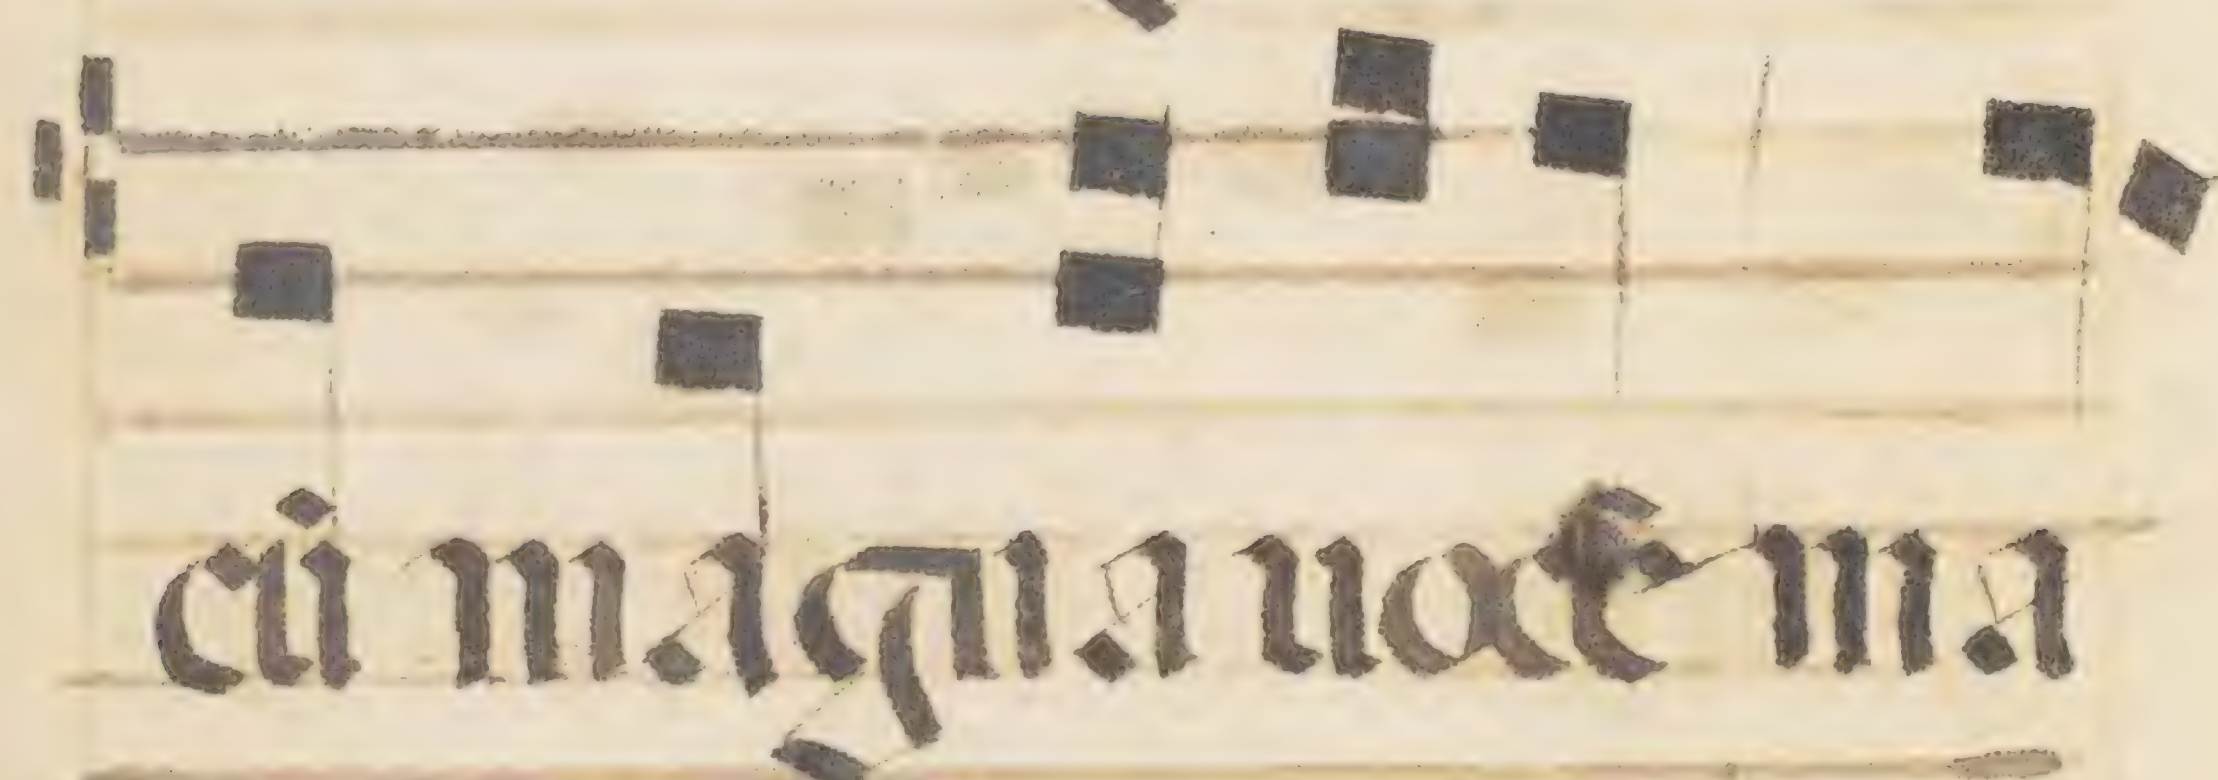 cū magna uoce ma